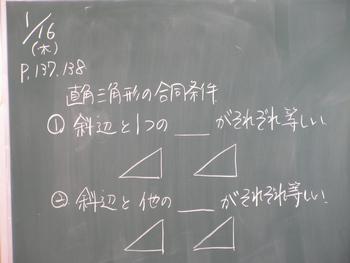 1/16
(木)
P.137.138
直角三角形の合同条件
① 斜辺と1つの ___ がそれぞれ等しい
② 斜辺と他の ___ がそれぞれ等しい